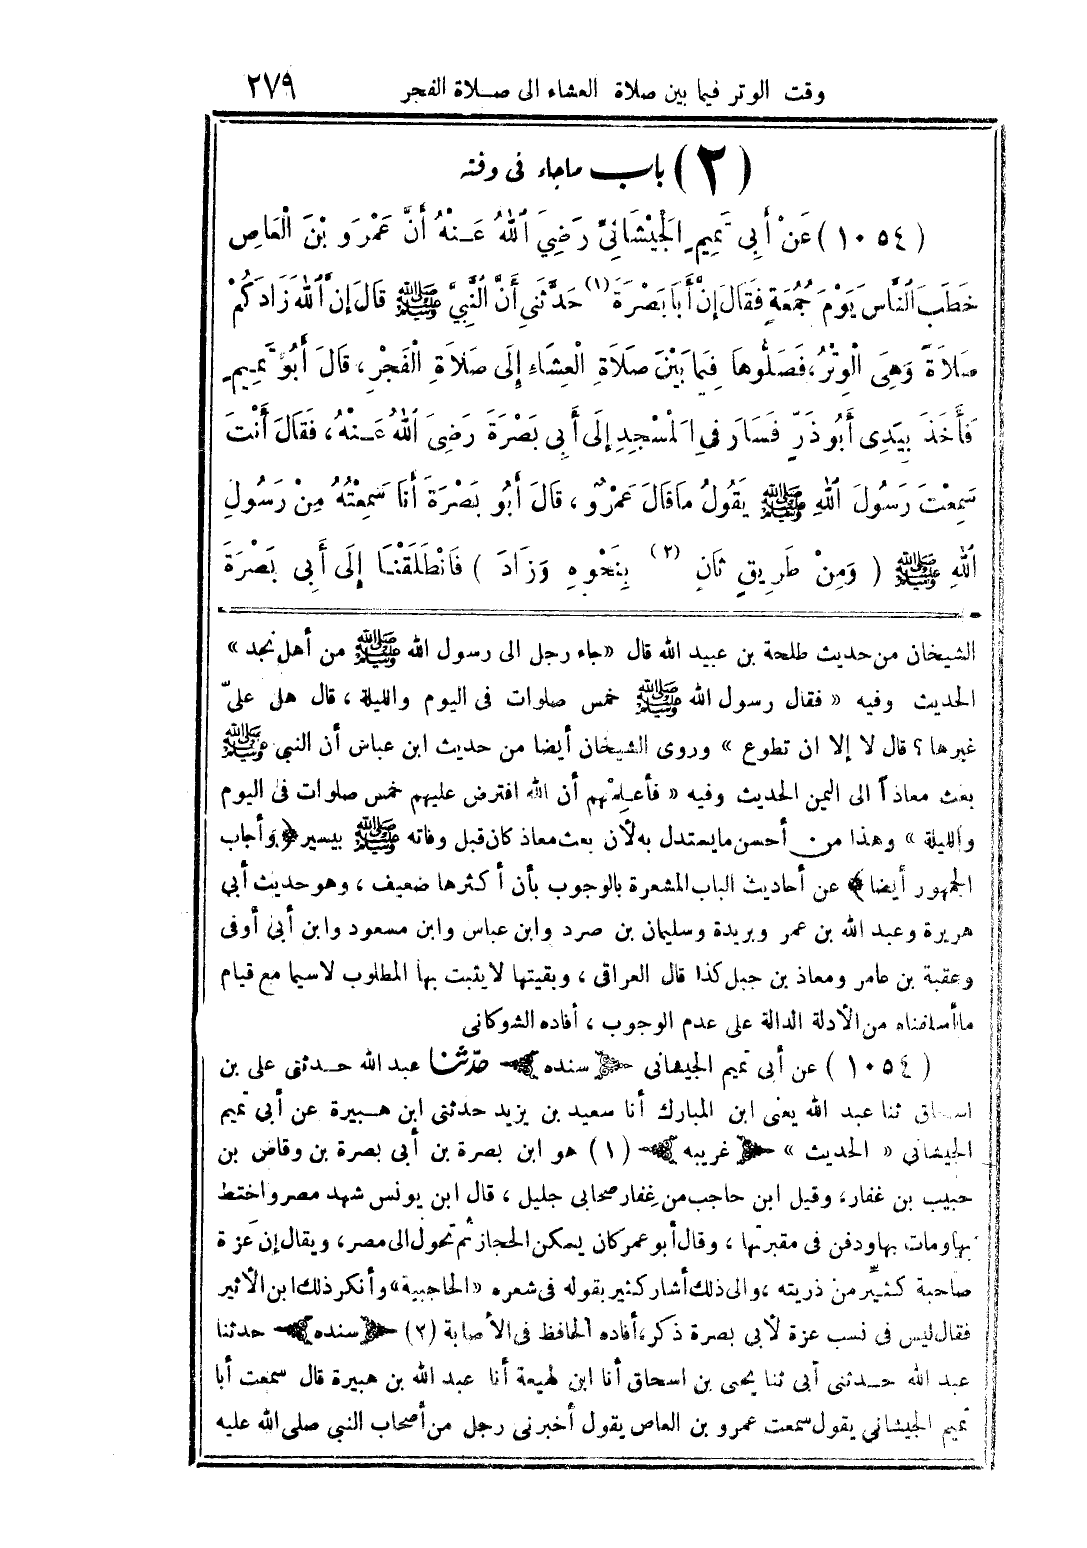 وقت الوتر فيما بين صلاة العشاء الى صلاة الفجر ٢٧٩
(٢) باب ماجاء فى وقته
(١٠٥٤) عَنْ أَبِي تَمِيمٍ الْجَيْشَانِيِّ رَضِيَ اللهُ عَنْهُ أَنَّ عَمْرَو بْنَ الْعَاصِ
خَطَبَ النَّاسَ يَوْمَ جُمُعَةٍ فَقَالَ إِنَّ أَبَا بَصْرَةَ (١) حَدَّثَنِي أَنَّ النَّبِيَّ ﷺ قَالَ إِنَّ اللهَ زَادَكُمْ
صَلَاةً وَهِيَ الْوِتْرُ، فَصَلُّوهَا فِيمَا بَيْنَ صَلَاةِ الْعِشَاءِ إِلَى صَلَاةِ الْفَجْرِ، قَالَ أَبُو تَمِيمٍ
فَأَخَذَ بِيَدِى أَبُو ذَرٍّ فَسَارَ فِى الْمَسْجِدِ إِلَى أَبِى بَصْرَةَ رَضِيَ اللهُ عَنْهُ، فَقَالَ أَنْتَ
سَمِعْتَ رَسُولَ اللهِ ﷺ يَقُولُ مَا قَالَ عَمْرٌو، قَالَ أَبُو بَصْرَةَ أَنَا سَمِعْتُهُ مِنْ رَسُولِ
اللهِ ﷺ (وَمِنْ طَرِيقٍ ثَانٍ (٢) بِنَحْوِهِ وَزَادَ) فَانْطَلَقْنَا إِلَى أَبِى بَصْرَةَ
الشيخان من حديث طلحة بن عبيد الله قال «جاء رجل الى رسول الله ﷺ من أهل نجد»
الحديث وفيه «فقال رسول الله ﷺ خمس صلوات فى اليوم والليلة، قال هل علىّ
غيرها؟ قال لا إلا ان تطوع» وروى الشيخان أيضا من حديث ابن عباس أن النبي ﷺ
بعث معاذاً الى اليمن الحديث وفيه «فأعلِمْهم أن الله افترض عليهم خمس صلوات فى اليوم
والليلة» وهذا من أحسن ما يستدل به لأن بعث معاذ كان قبل وفاته ﷺ بيسير ﴿وأجاب
الجمهور أيضا﴾ عن أحاديث الباب المشعرة بالوجوب بأن أكثرها ضعيف، وهو حديث أبي
هريرة وعبد الله بن عمر وبريدة وسليمان بن صرد وابن عباس وابن مسعود وابن أبى أوفى
وعقبة بن عامر ومعاذ بن جبل كذا قال العراقى، وبقيتها لا يثبت بها المطلوب لاسيما مع قيام
ما أسلفناه من الأدلة الدالة على عدم الوجوب، أفاده الشوكانى
(١٠٥٤) عن أبي تميم الجيشانى ﴿سنده﴾ حدّثنا عبد الله حدثنى على بن
اسحاق ثنا عبد الله يعنى ابن المبارك أنا سعيد بن يزيد حدثنى ابن هبيرة عن أبي تميم
الجيشانى «الحديث» ﴿غريبه﴾ (١) هو ابن بصرة بن أبى بصرة بن وقاص بن
حبيب بن غفار، وقيل ابن حاجب من غِفار صحابى جليل، قال ابن يونس شهد مصر واختط
بها ومات بها ودفن فى مقبرتها، وقال أبو عمر كان يسكن الحجاز ثم تحول الى مصر، ويقال إن عَزة
صاحبة كثيّر من ذريته، والى ذلك أشار كثير بقوله فى شعره «الحاجبية» وأنكر ذلك ابن الأثير
فقال ليس فى نسب عزة لأبى بصرة ذكر، أفاده الحافظ فى الأصابة (٢) ﴿سنده﴾ حدثنا
عبد الله حدثنى أبى ثنا يحيى بن اسحاق أنا ابن لهيعة أنا عبد الله بن هبيرة قال سمعت أبا
تميم الجيشانى يقول سمعت عمرو بن العاص يقول أخبرنى رجل من أصحاب النبى صلى الله عليه